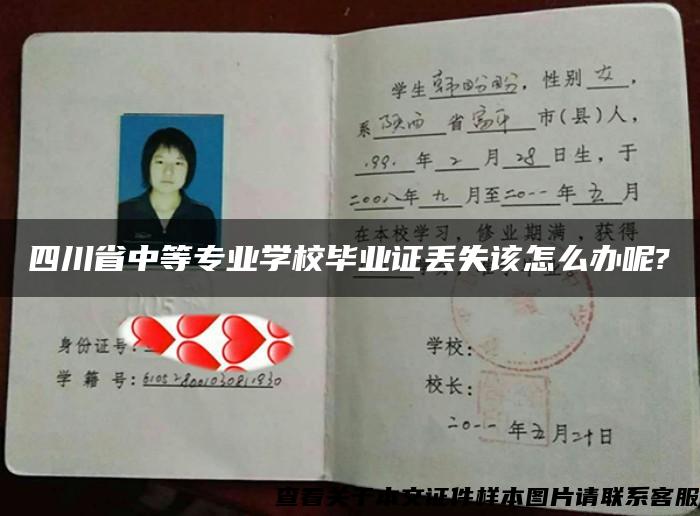 学生韩盼盼，性别女，
系陕西省富平市(县)人，
199.年2月28日生，于
二00八年九月至二0一一年五月
在本校学习，修业期满，获得
四川省中等专业学校毕业证丢失该怎么办呢?
身份证号：
学籍号：
学校：
校长：
二0一一年五月二十日
查看关于本文证件样本图片请联系客服